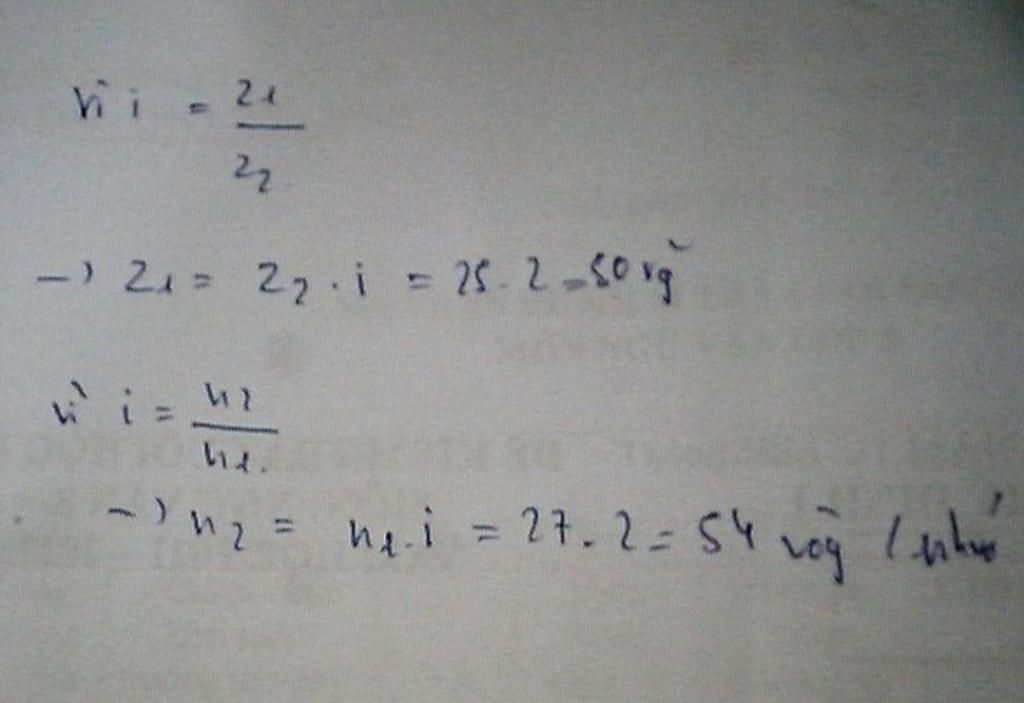 Vì i = Z1 / Z2
→ Z1 = Z2 . i = 25 . 2 = 50 rg
vì i = n2 / n1.
→ n2 = n1 . i = 27 . 2 = 54 vòg / phút